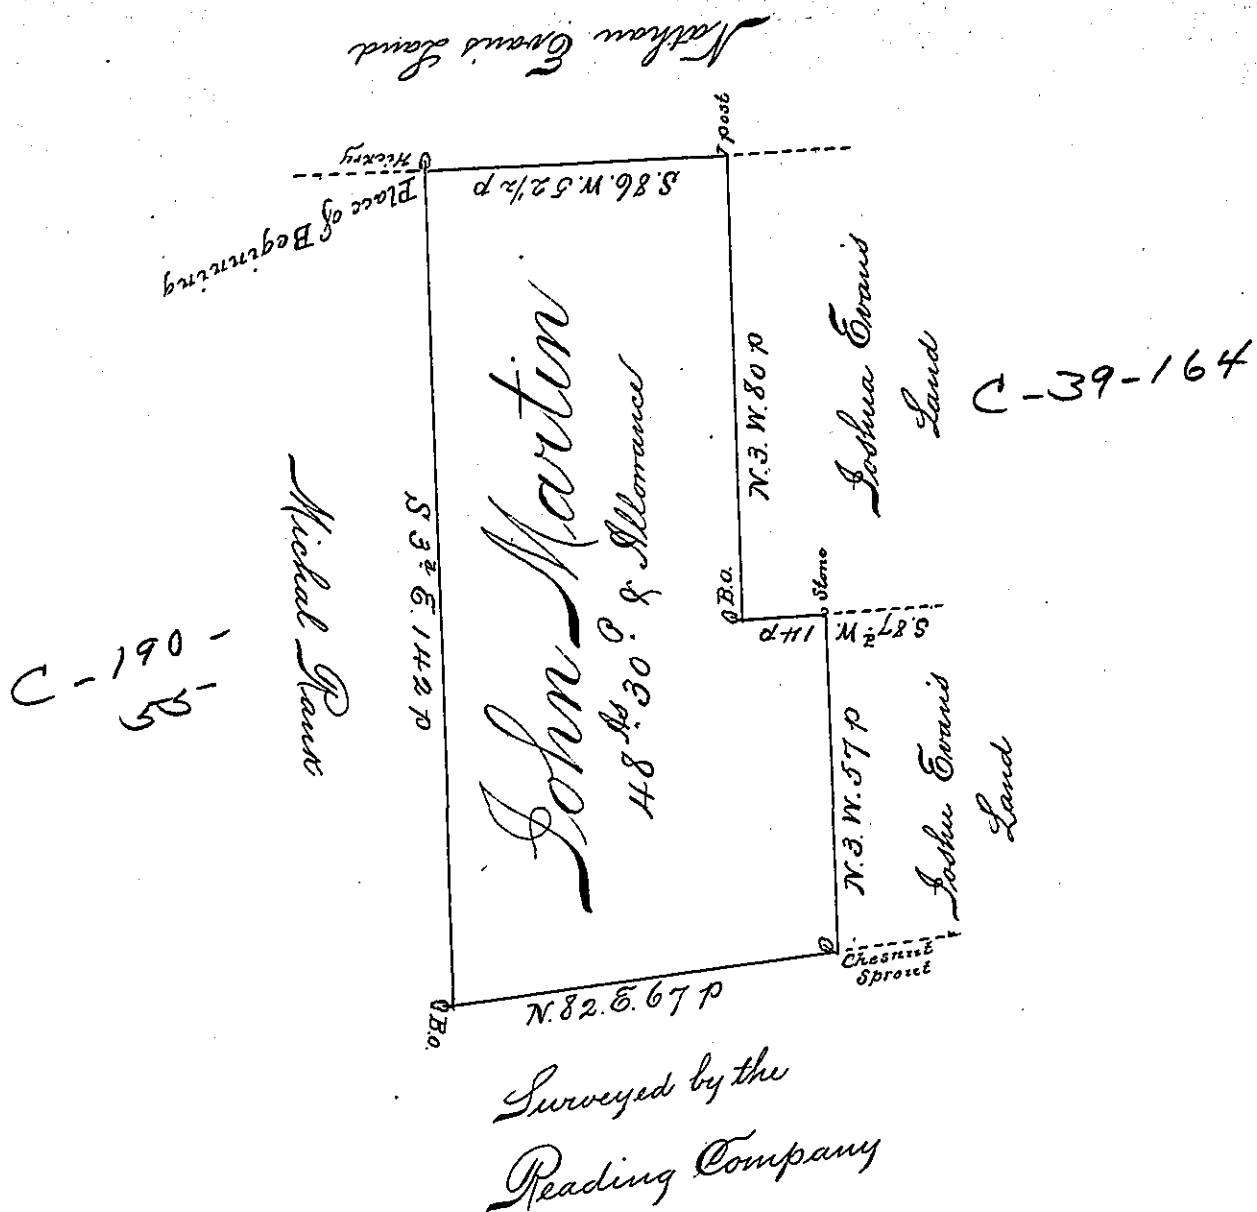 Nathan Evans Land
post
Hickry
Place of Beginning
S.86.W.52½ p
Joshua Evans
Land
C-39-164
N.3.W.80 p
John Martin
48 As. 30 P. & Allowance
Michal Rank
S 3¾ E.142 p
C-190-
55-
B.O.
Stone
S.87¾ W 14 p
N.3.W.57 p
Joshu Evans
Land
Chesnut
Sprout
N.82.E.67 p
B.O.
Surveyed by the
Reading Company